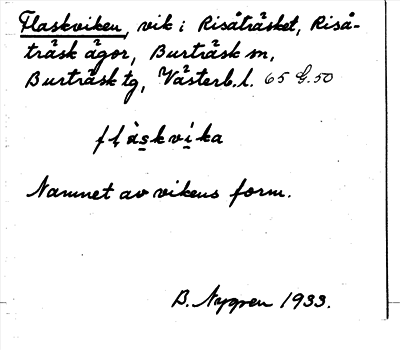 Flaskviken, vik i Risåträsket, Riså-
träsk ägor, Burträsk sn,
Burträsk tg, Västerb. l. 65 G. 50
flàskvíka
Namnet av vikens form.
B. Nygren 1933.